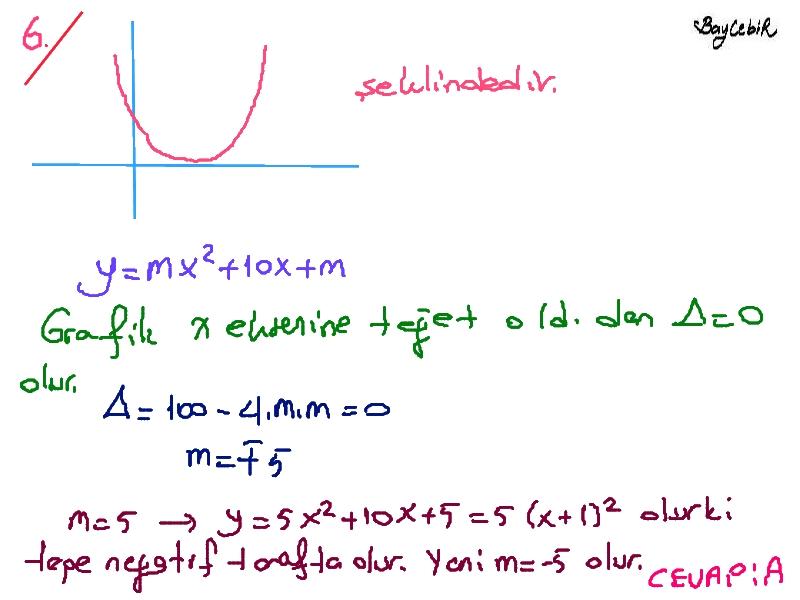 6.
BayCebiR
şeklindedir.
y=mx²+10x+m
Grafik x eksenine teğet old.dan Δ=0
olur.
Δ=100-4.m.m=0
m=∓5
m=5 → y=5x²+10x+5=5(x+1)² olurki
tepe negatif tarafta olur. Yani m=-5 olur.
CEVAP:A